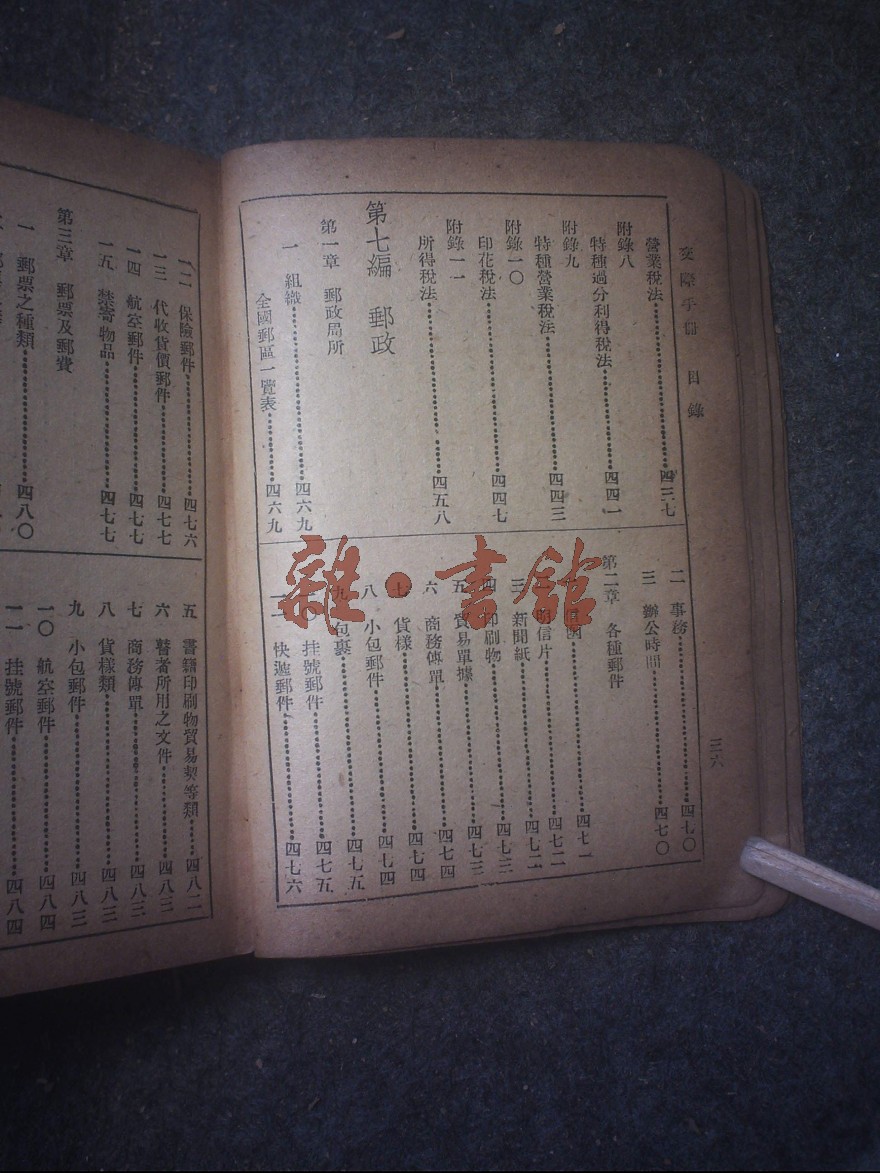 交際手冊 目錄
三六
營業稅法⋯⋯四三七
附錄八
特種過分利得稅法⋯⋯四四一
附錄九
特種營業稅法⋯⋯四四三
附錄一〇
印花稅法⋯⋯四四七
附錄一一
所得稅法⋯⋯四五八
第七編 郵政
第一章 郵政局所
一 組織⋯⋯四六九
全國郵區一覽表⋯⋯四六九
二 事務⋯⋯四七〇
三 辦公時間⋯⋯四七〇
第二章 各種郵件
信函⋯⋯四七一
明信片⋯⋯四七二
三 新聞紙⋯⋯四七二
四 印刷物⋯⋯四七三
五 貿易單據⋯⋯四七三
六 商務傳單⋯⋯四七四
七 貨樣⋯⋯四七四
八 小包郵件⋯⋯四七四
九 包裹⋯⋯四七五
一〇 挂號郵件⋯⋯四七五
一一 快遞郵件⋯⋯四七六
一二 保險郵件⋯⋯四七六
一三 代收貨價郵件⋯⋯四七七
一四 航空郵件⋯⋯四七七
一五 禁寄物品⋯⋯四七七
第三章 郵票及郵費
一 郵票之種類⋯⋯四八〇
五 書籍印刷物貿易契等類⋯⋯四八二
六 瞽者所用之文件⋯⋯四八三
七 商務傳單⋯⋯四八三
八 貨樣類⋯⋯四八三
九 小包郵件⋯⋯四八三
一〇 航空郵件⋯⋯四八四
一一 挂號郵件⋯⋯四八四
雜·書館